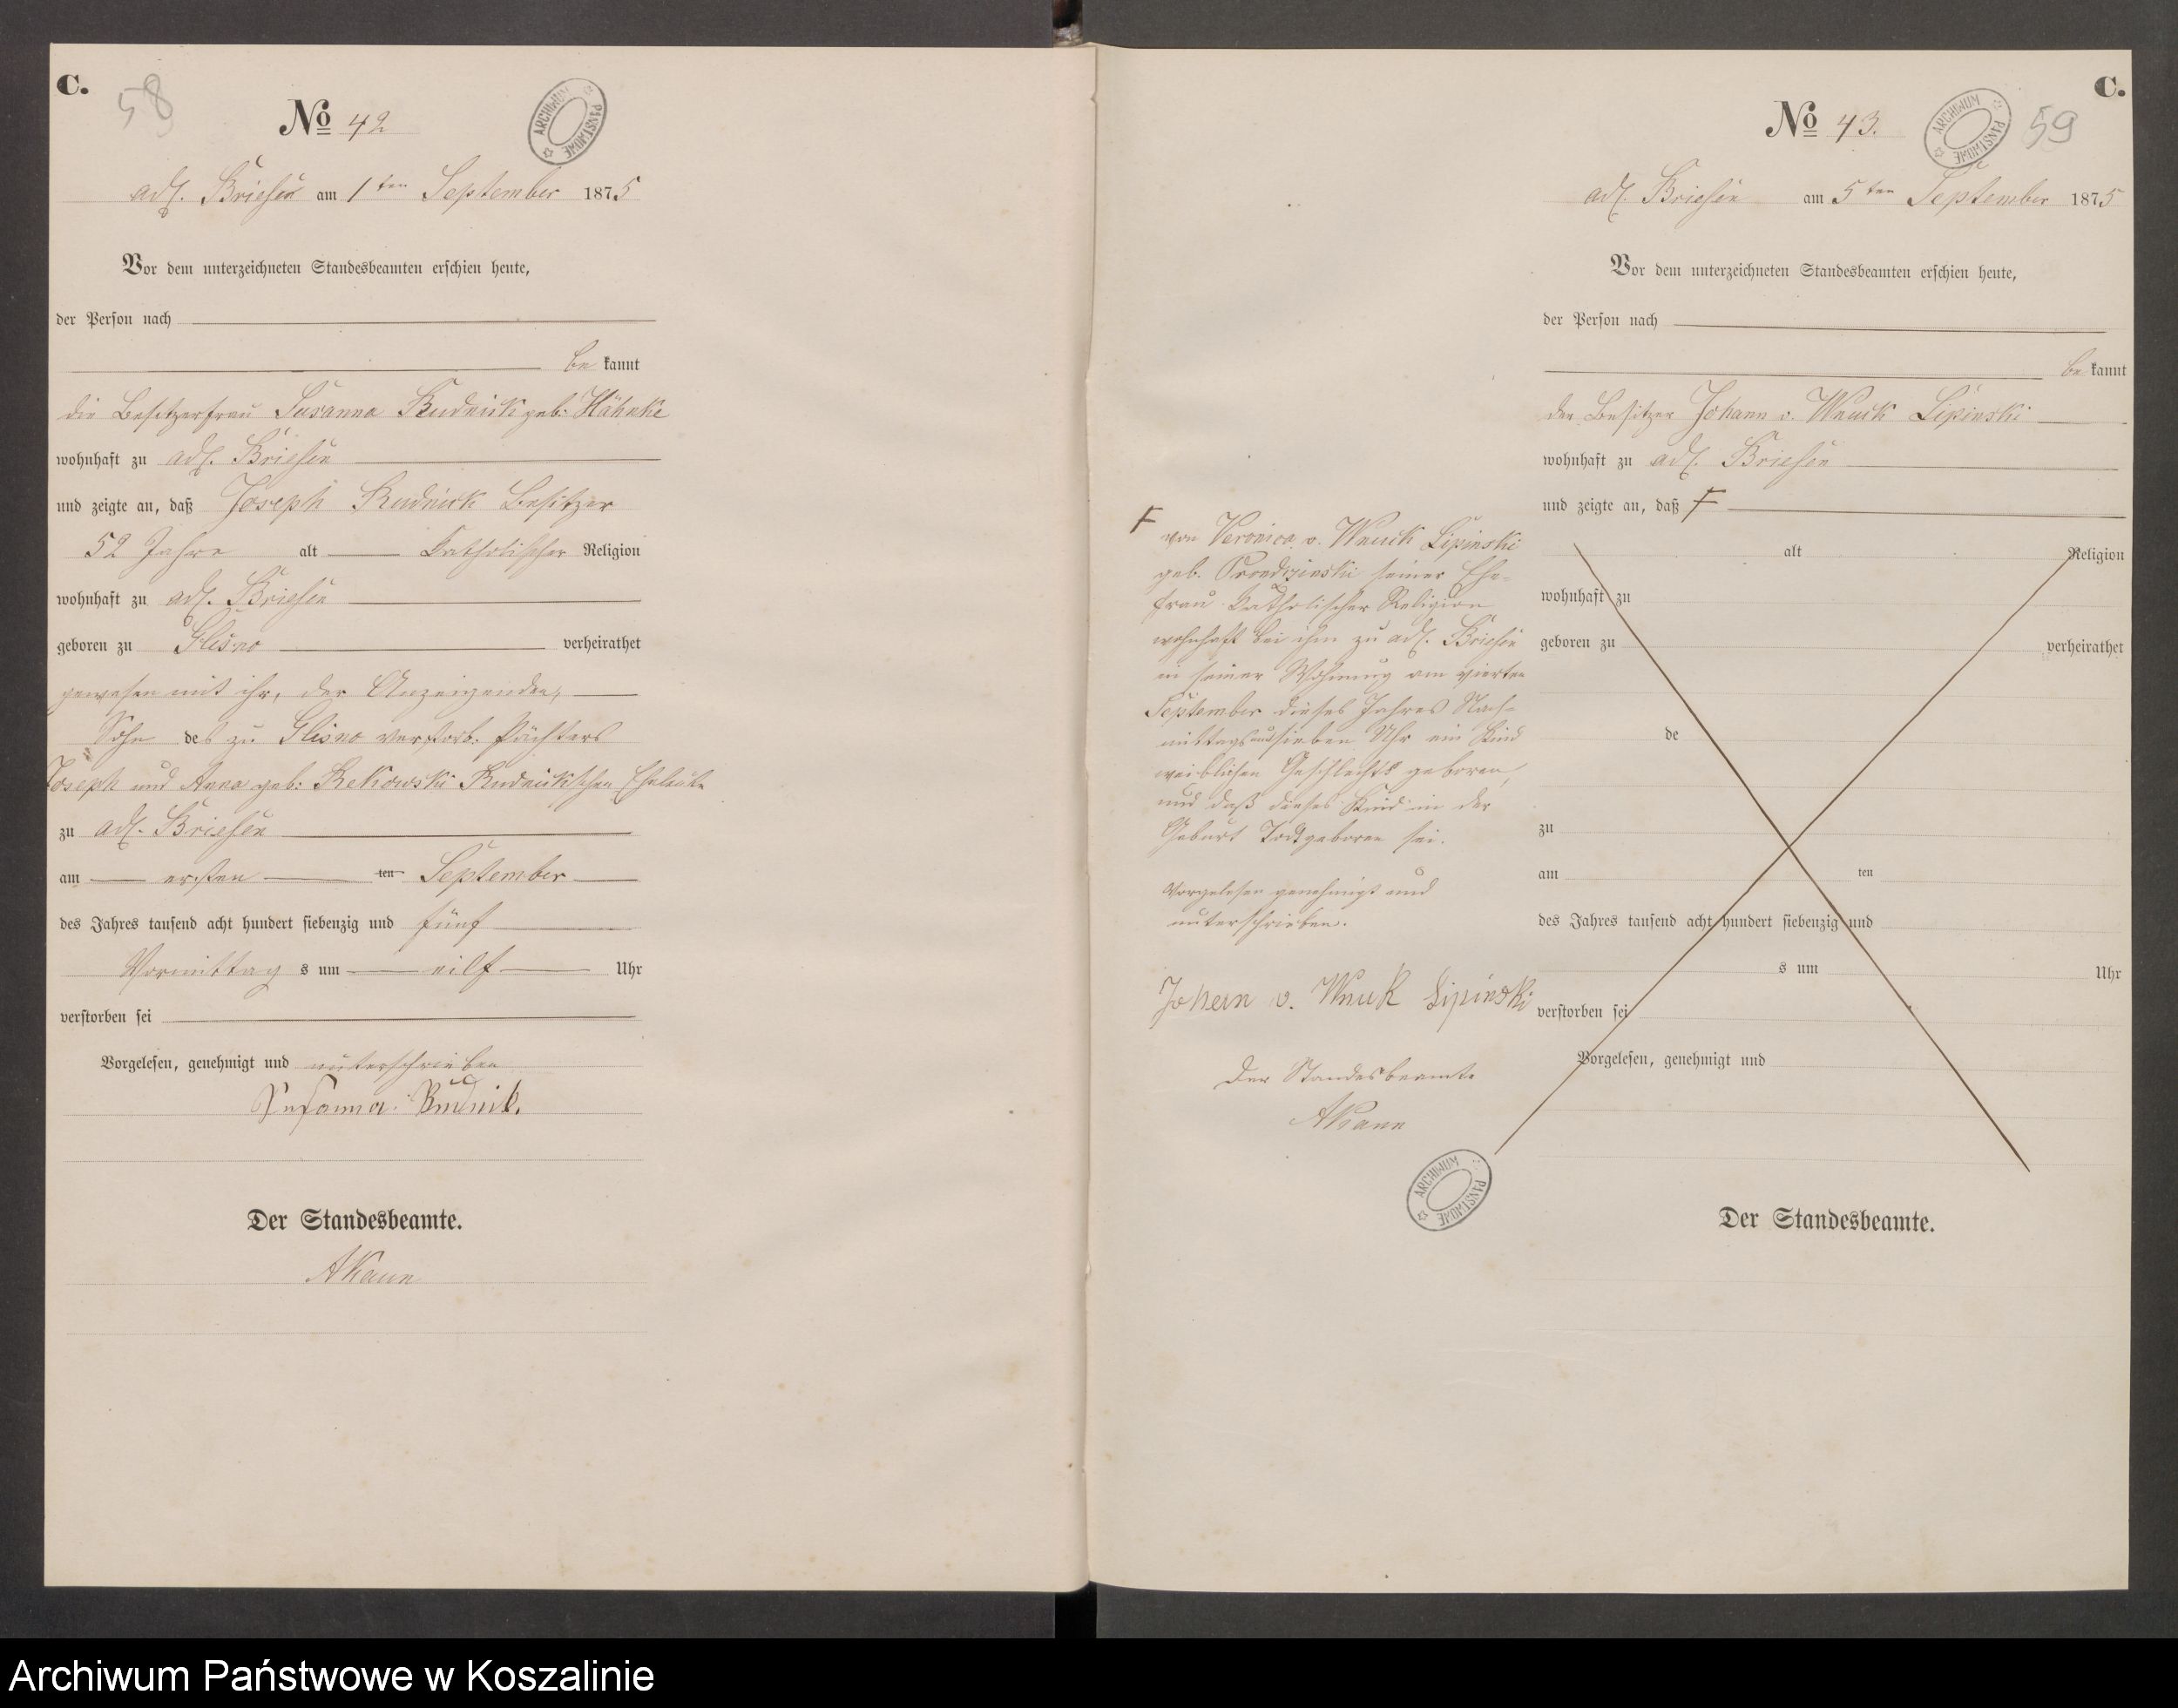 C.
58
No 42
ARCHIWUM PAŃSTWOWE
adl. Briesen am 1ten September 1875
Vor dem unterzeichneten Standesbeamten erschien heute,
der Person nach
be kannt
die Besitzerfrau Susanna Rudnick geb: Hähnke
wohnhaft zu adl. Briesen
und zeigte an, daß Joseph Rudnick Besitzer
52 Jahre alt Katholischer Religion
wohnhaft zu adl. Briesen
geboren zu Glisno verheirathet
gewesen mit ihr, der Anzeigenden,
Sohn des zu Glisno verstorb: Pächters
Joseph und Anna geb: Rekowski Rudnickschen Eheleute
zu adl. Briesen
am ersten ten September
des Jahres tausend acht hundert siebenzig und fünf
Vormittag s um eilf Uhr
verstorben sei
Vorgelesen, genehmigt und unterschrieben
Susanna Rudnik.
Der Standesbeamte.
AKaun
C.
No 43.
ARCHIWUM PAŃSTWOWE
59
adl. Briesen am 5ten September 1875
Vor dem unterzeichneten Standesbeamten erschien heute,
der Person nach
be kannt
der Besitzer Johann v. Wnuck Lipinski
wohnhaft zu adl. Briesen
und zeigte an, daß F
alt Religion
wohnhaft zu
geboren zu verheirathet
de
zu
am ten
des Jahres tausend acht hundert siebenzig und
s um Uhr
verstorben sei
Vorgelesen, genehmigt und
Der Standesbeamte.
F
von Veronica v. Wnuck Lipinski
geb. Prondzinski seiner Ehe-
frau Katholischer Religion
wohnhaft bei ihm zu adl. Briesen
in seiner Wohnung am vierten
September dieses Jahres Nach-
mittags um sieben Uhr ein Kind
weiblichen Geschlechts geboren,
und daß dieses Kind in der
Geburt Todtgeboren sei.
Vorgelesen genehmigt und
unterschrieben.
Johann v. Wnuk Lipinski
Der Standesbeamte
AKaun
ARCHIWUM PAŃSTWOWE
Archiwum Państwowe w Koszalinie